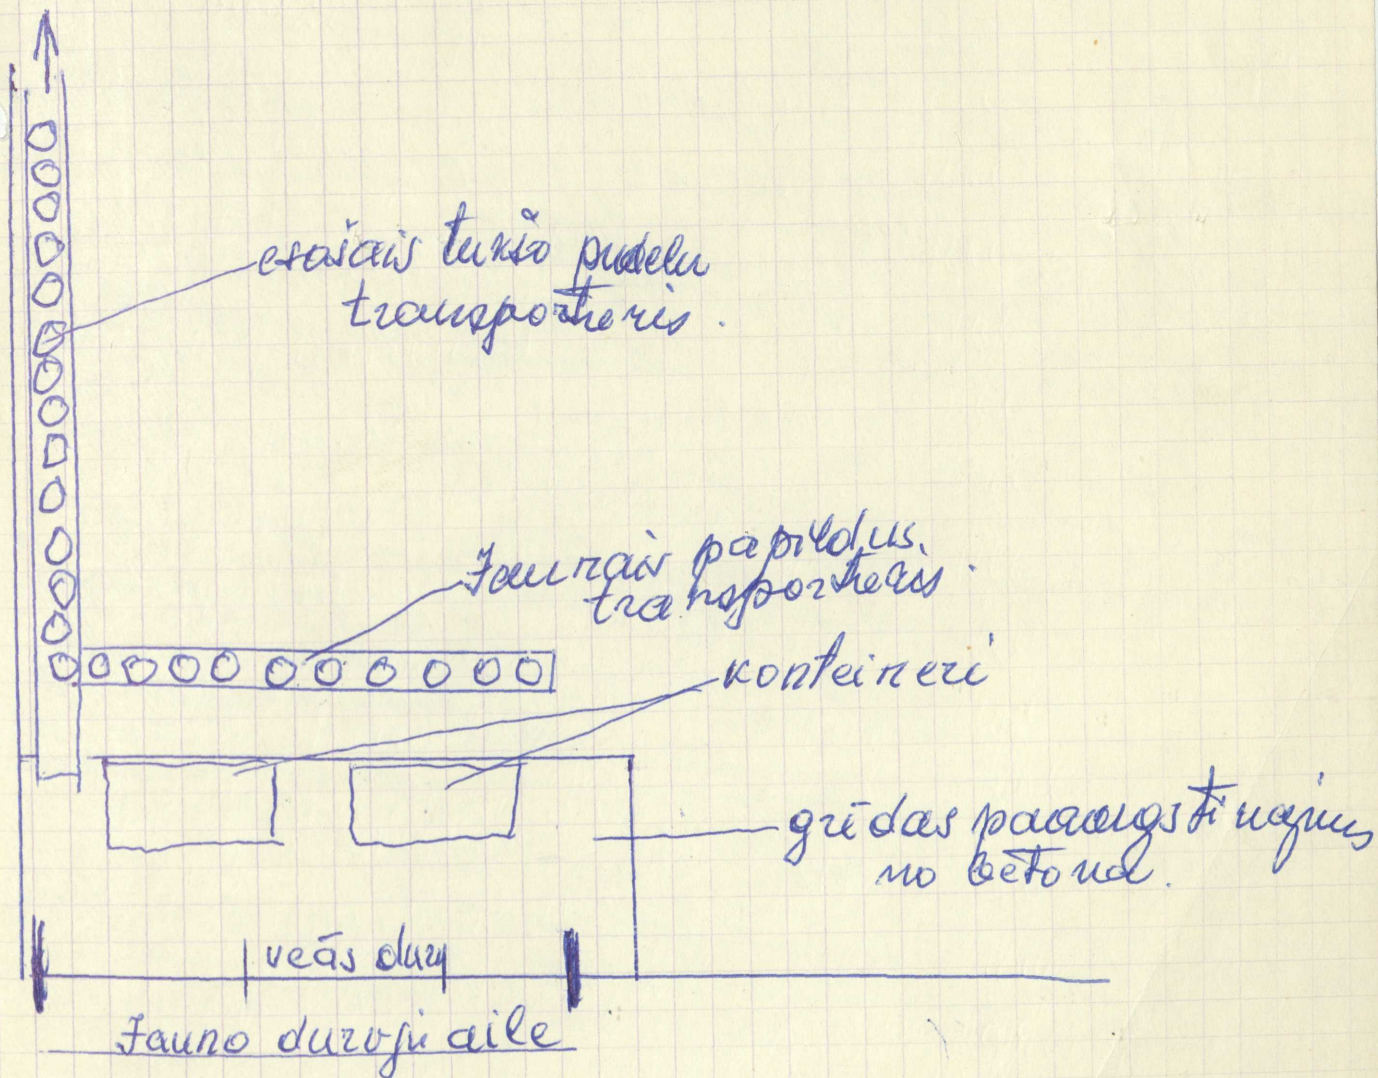 esošais tukšo pudeļu
transportieris.
Jaunais papildus
transportieris.
konteineri
grīdas paaugstinājums
no betona.
vecās durv
Jauno durvju aile